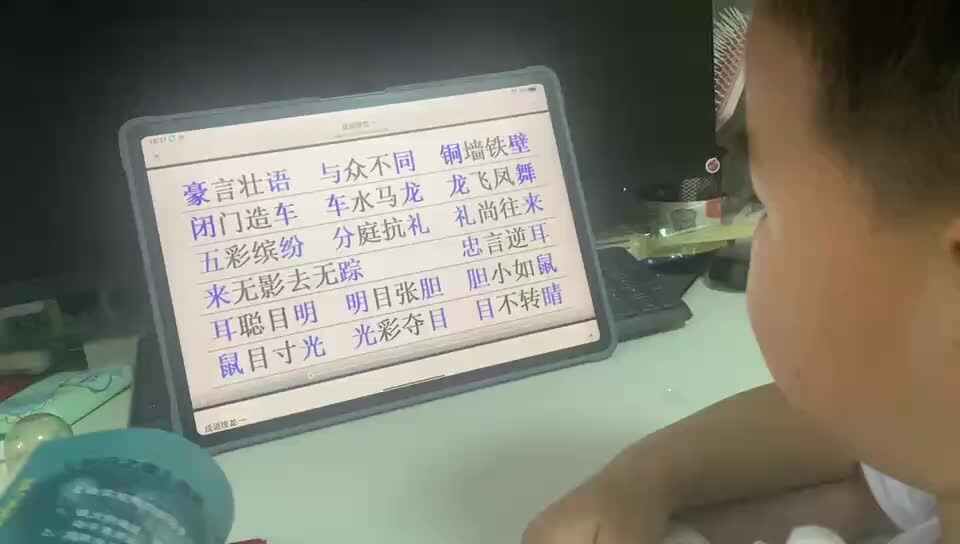 豪言壮语 与众不同 铜墙铁壁
闭门造车 车水马龙 龙飞凤舞
五彩缤纷 分庭抗礼 礼尚往来
来无影去无踪 忠言逆耳
耳聪目明 明目张胆 胆小如鼠
鼠目寸光 光彩夺目 目不转睛